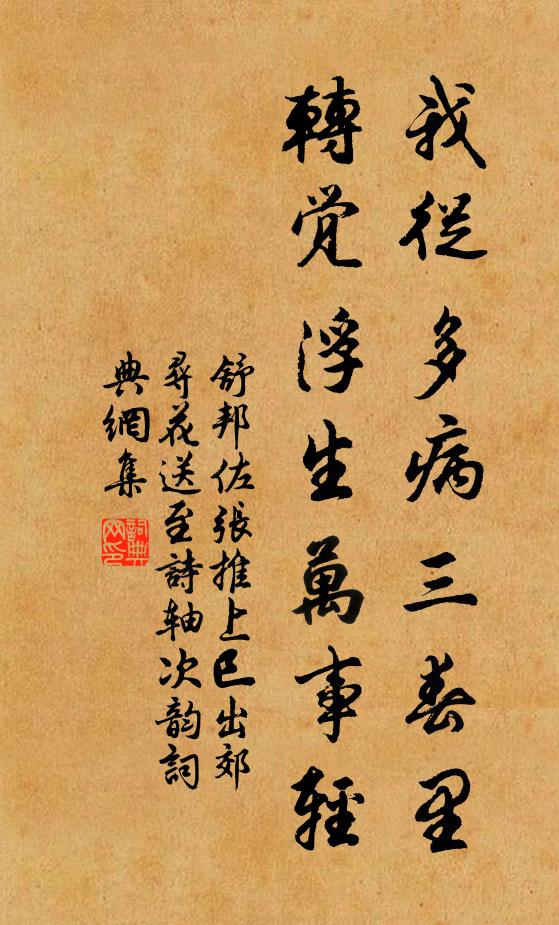 我從多病三春里
轉覺浮生萬事輕
舒邦佐張推上巳出郊
尋花送至詩軸次韵詞
典網集
詞典网印